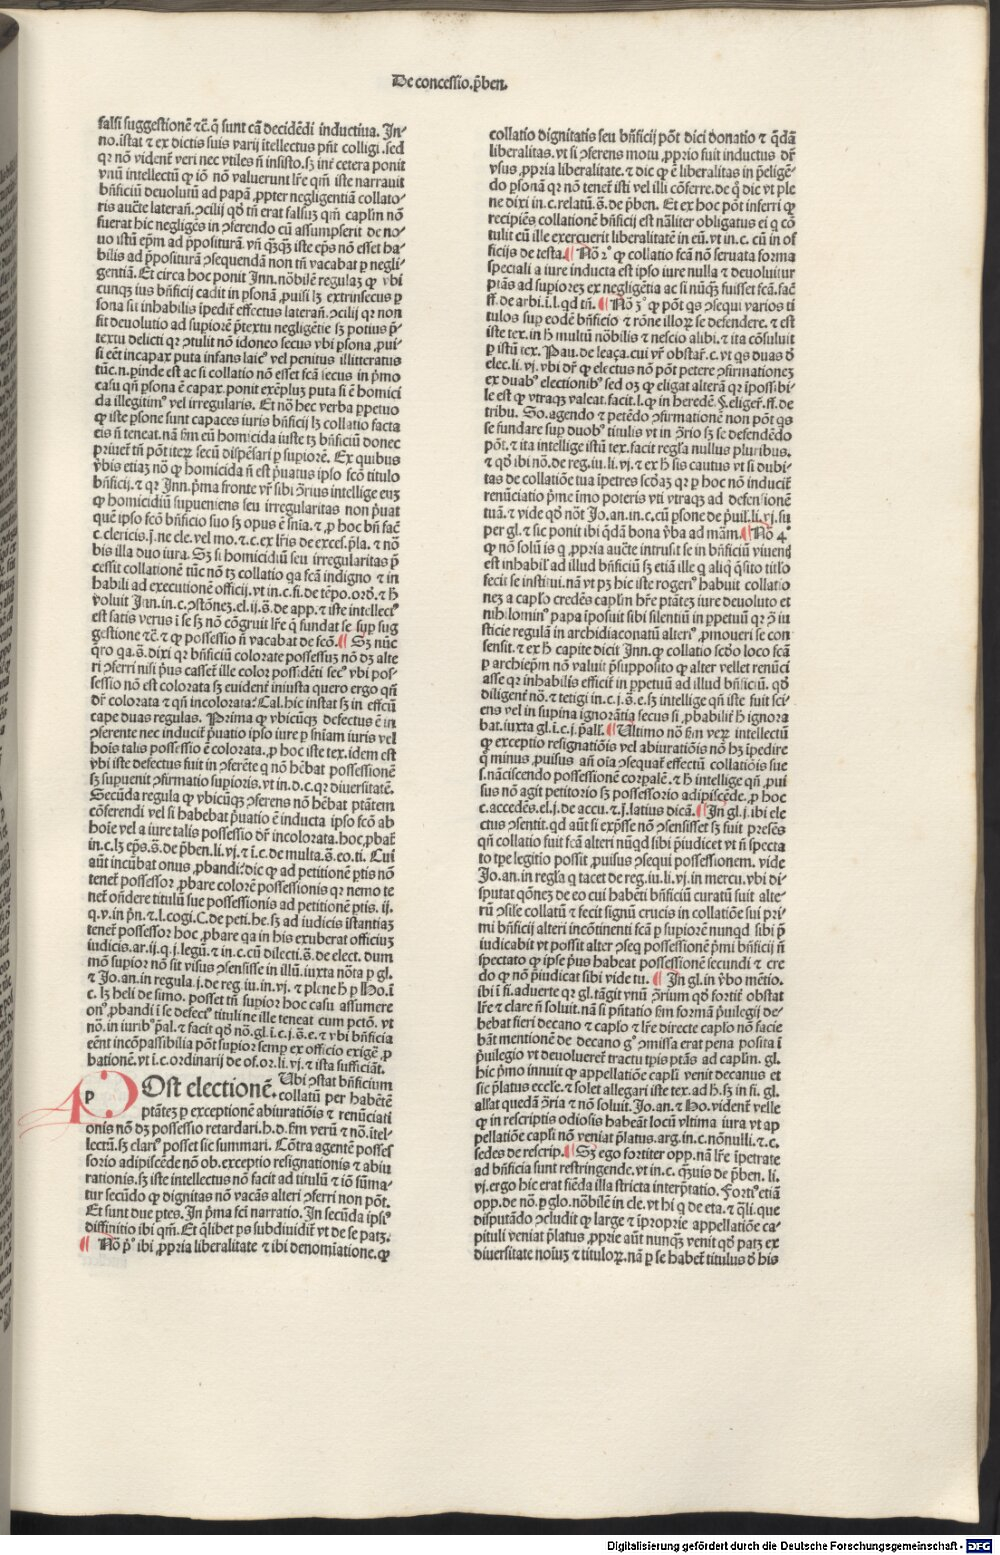 De concessio.p̄ben.
falsi suggestionē ⁊c̄.q̄ sunt cā decidēdi inductiua. In⸗
no.istat ⁊ ex dictis suis varij itellectus pn̄t colligi.sed
qr nō vident̄ veri nec vtiles n̄ insisto.sꝫ int̄ cetera ponit
vnū intellectū ꝙ iō nō valuerunt lr̄e qm̄ iste narrauit
bn̄ficiū deuolutū ad papā ꝓpter negligentiā collato⸗
ris auct̄e laterañ.ↄcilij qd̓ tn̄ erat falsuꝫ qm̄ capl̄m nō
fuerat hic negligēs in ↄferendo cū assumpserit de no⸗
uo istū ep̄m ad p̄posituraꝫ vn̄ q̄sꝙ iste ep̄s nō esset ha⸗
bilis ad p̄posituraꝫ ↄsequendā non tn̄ vacabat ꝑ negli⸗
gentiā. Et circa hoc ponit Inn.nōbilē regulaꝫ ꝙ vbi
cunqꝫ ius bn̄ficij cadit in ꝑsonā ꝓuisi lꝫ extrinsecus ꝑ
sona sit inhabilis īpedit̄ effectus laterañ.ↄcilij qr non
fit deuolutio ad supiorē p̄textu negligētie sꝫ potius p̄⸗
textu delicti qr ↄtulit nō idoneo secus vbi ꝑsona ꝓui⸗
si eēt incapax puta infans laic⁹ vel penitus illitteratus
tūc.n.ꝑinde est ac si collatio nō esset fcā secus in p̄mo
casu qn̄ ꝑsona ē capax.ponit exēpluꝫ puta si ē homici
da illegitim⁹ vel irregularis. Et nō hec verba ꝑpetuo
ꝙ iste ꝑsone sunt capaces iuris bn̄ficij lꝫ collatio facta
eis n̄ teneat.nā fm̄ eū homicida iuste tꝫ bn̄ficiū donec
priuet̄ tn̄ pōt iteꝝ secū dispēsari ꝑ supiorē. Ex quibus
v̄bis etiaꝫ nō ꝙ homicida n̄ est p̄uatus ipso fcō titulo
bn̄ficij.⁊ qr Inn.p̄ma fronte vr̄ sibi ↄ̄rius intellige euꝫ
ꝙ homicidiū supueniens seu irregularitas non p̄uat
quē ipso fcō bn̄ficio suo sꝫ opus ē sn̄ia.⁊ ꝓ hoc bn̄ facē
c.clericis.j.ne cle.vel mo.⁊.c.ex lr̄is de excess.p̄la.⁊ nō
bis illa duo iura. Sꝫ si homicidiū seu irregularitas p̄
cessit collationē tūc nō tꝫ collatio qa fcā indigno ⁊ in
habili ad executionē officij.vt in.c.fi.de tēpo.ord̓.⁊ h̄
voluit Inn.in.c.ↄstōneꝫ.el.ij.s̄.de app.⁊ iste intellec⁹
est satis verus ī se sꝫ nō cōgruit lr̄e q̄ fundat se sup sug
gestione ⁊c̄.⁊ ꝙ possessio n̄ vacabat de fcō.¶ Sꝫ nūc
qro qa.s̄.dixi qr bn̄ficiū colorate possessuꝫ nō dꝫ alte
ri ↄferri nisi p̄us casset̄ ille color possidēti sec⁹ vbi pos⸗
sessio nō est colorata sꝫ euident̄ iniusta quero ergo qn̄
dr̄ colorata ⁊ qn̄ incolorata:Cal.hic instat sꝫ in effcū
cape duas regulas. Prima ꝙ vbicūqꝫ defectus ē in
ↄferente nec inducit̄ p̄uatio ipso iure ꝑ sn̄iam iuris vel
hoīs talis possessio ē colorata.ꝓ hoc iste tex.idem est
vbi iste defectus fuit in ↄferēte q nō hēbat possessionē
sꝫ supuenit ↄfirmatio supioris.vt in.d.c.qr diuersitatē.
Secūda regula ꝙ vbicūqꝫ ↄferens nō hēbat ptātem
cōferendi vel si habebat p̄uatio ē inducta ipso fcō ab
hoīe vel a iure talis possessio dr̄ incolorata.hoc ꝓbat̄
in.c.lꝫ ep̄s.s̄.de p̄ben.li.vj.⁊ ī.c.de multa.s̄.eo.ti. Cui
aūt incūbat onus ꝓbandi:dic ꝙ ad petitionē ꝑtis nō
tenet̄ possessor ꝓbare colorē possessionis qr nemo te
net̄ on̄dere titulū sue possessionis ad petitionē ꝑtis.ij.
q.v.in p̄n.⁊.l.cogi.C.de peti.he.sꝫ ad iudicis īstantiaꝫ
tenet̄ possessor hoc ꝓbare qa in his exuberat officiuꝫ
iudicis.ar.ij.q.j.legū.⁊ in.c.cū dilecti.s̄.de elect. dum
mō supior nō sit visus ↄsensisse in illū.iuxta nōta ꝑ gl.
⁊ Jo.an.in regula.j.de reg.iu.in.vj.⁊ plene h̄ ꝑ Ho.ī
c. lꝫ heli de simo. posset tn̄ supior hoc casu assumere
on⁹ ꝓbandi ī se defect⁹ tituli ne ille teneat cum pctō. vt
nō.in iurib⁹ p̄al.⁊ facit qd̓ nō.gl.ī.c.j.s̄.e.⁊ vbi bn̄ficia
eēnt incōpassibilia pōt supior semꝑ ex officio exigē ꝓ
bationē.vt ī.c.ordinarij de of.or.li.vj.⁊ ista sufficiāt.
POst electionē. Ubi ↄstat bn̄ficium
collatū per habētē
ptātē ꝑ exceptionē abiuratiōis ⁊ renūciati
onis nō dꝫ possessio retardari.h.d.fm̄ verū ⁊ nō.itel⸗
lectū.sꝫ clari⁹ posset sic summari. Cōtra agentē posses
sorio adipiscēde nō ob.exceptio resignationis ⁊ abiu
rationis.sꝫ iste intellectus nō facit ad titulū ⁊ iō sūma⸗
tur secūdo ꝙ dignitas nō vacās alteri ↄferri non pōt.
Et sunt due ꝑtes. In p̄ma fcī narratio. In secūda ipsi⁹
diffinitio ibi qm̄. Et q̄libet ps subdiuidit̄ vt de se patꝫ.
¶ Nō p̄° ibi ꝓpria liberalitate ⁊ ibi denomīatione.ꝙ
collatio dignitatis seu bn̄ficij pōt dici donatio ⁊ q̄dā
liberalitas.vt si ↄferens motu ꝓprio fuit inductus dr̄
vsus ꝓpria liberalitate.⁊ dic ꝙ ē liberalitas in p̄eligē⸗
do ꝑsonā qr nō tenet̄ isti vel illi cōferre.de q̄ dic vt ple
ne dixi in.c.relatū.s̄.de p̄ben. Et ex hoc pōt inferri ꝙ
recipiēs collationē bn̄ficij est nāliter obligatus ei q cō
tulit eū ille exercuerit liberalitatē in eū.vt in.c. cū in of
ficijs de testa.¶ Nō 2° ꝙ collatio fcā nō seruata forma
speciali a iure inducta est ipso iure nulla ⁊ deuoluitur
ptās ad supioreꝫ ex negligētia ac si nūqꝫ fuisset fcā.facē
ff.de arbi.ī.l.qd tn̄. ¶ Nō 3° ꝙ pōt qs ↄsequi varios ti
tulos sup eodē bn̄ficio ⁊ rōne illoꝝ se defendere.⁊ est
iste tex.in h̄ multū nōbilis ⁊ nescio alibi.⁊ ita cōsuluit
ꝑ istū tex. Pau.de leaça.cui vr̄ obstar̄.c.vt qs duas d̓
elec.li.vj.vbi dr̄ ꝙ electus nō pōt petere ↄfirmationeꝫ
ex duab⁹ electionib⁹ sed oꝫ ꝙ eligat alterā qr īpossibi⸗
le est ꝙ vtraqꝫ valeat.facit.l.ꝙ in heredē.§.eliger̄.ff.de
tribu. So.agendo ⁊ petēdo ↄfirmationē non pōt qs
se fundare sup duob⁹ titulis vt in ↄ̄rio sꝫ se defendēdo
pōt.⁊ ita intellige istū tex.facit regl̄a nullus pluribus.
⁊ qd̓ ibi nō.de reg.iu.li.vj.⁊ ex h̄ sis cautus vt si dubi⸗
tas de collatiōe tua īpetres scd̓aꝫ qr ꝑ hoc nō inducit̄
renūciatio p̄me īmo poteris vti vtraqꝫ ad defensionē
tuā.⁊ vide qd̓ nōt Jo.an.in.c.cū ꝑsone de p̄uil.li.vj.su
per gl.⁊ sic ponit ibi q̄dā bona v̄ba ad mām.¶ Nō 4°
ꝙ nō solū is q ꝓpria auct̄e intrusit se in bn̄ficiū viuend
est inhabil⁹ ad illud bn̄ficiū sꝫ etiā ille q aliq̄ q̄sito titl̄o
fecit se institui.nā vt pꝫ hic iste roger⁹ habuit collatio
neꝫ a capl̄o credēs capl̄m hr̄e ptātē iure deuoluto et
nihilomin⁹ papa īposuit sibi silentiū in ꝑpetuū qr ꝯ iu
sticie regulā in archidiaconatū alteri⁹ ꝓmoueri se con
sensit.⁊ ex h̄ capite dicit Inn.ꝙ collatio scd̓o loco fcā
ꝑ archiep̄m nō valuit p̄supposito ꝙ alter vellet renūci
asse qr inhabilis efficit̄ in ꝑpetuū ad illud bn̄ficiū. qd̓
diligent̄ nō.⁊ tetigi in.c.j.s̄.e.sꝫ intellige qn̄ iste fuit sci⸗
ens vel in supina ignorātia secus si ꝓbabilit̄ h̄ ignora
bat.iuxta gl.ī.c.j.p̄all.¶ Ultimo nō fm̄ veꝝ intellectū
ꝙ exceptio resignatiōis vel abiuratiōis nō hꝫ īpedire
q̄ minus ꝓuisus añ oīa ↄsequat̄ effectū collatiōis sue
s.nāciscendo possessionē corpalē.⁊ h̄ intellige qn̄ ꝓui
sus nō agit petitorio sꝫ possessorio adipiscēde.ꝓ hoc
c.accedēs.el.j.de accu.⁊.j.latius dicā.¶ In gl.j.ibi ele
ctus ↄsentit.qd aūt si exp̄sse nō ↄsensisset sꝫ fuit presēs
qn̄ collatio fuit fcā alteri nūqd sibi p̄iudicet vt n̄ specta
to tpe legitio possit ꝓuisus ↄsequi possessionem. vide
Jo.an.in regl̄a q tacet de reg.iu.li.vj.in mercu.vbi di⸗
sputat qōneꝫ de eo cui habēti bn̄ficiū curatū fuit alte⸗
rū ↄsile collatū ⁊ fecit signū crucis in collatiōe sui pri⸗
mi bn̄ficij alteri incōtinenti fcā ꝑ supiorē nunqd sibi p̄
iudicabit vt possit alter ↄseq possessionē p̄mi bn̄ficij n̄
spectato ꝙ ipse p̄us habeat possessionē secundi ⁊ cre
do ꝙ nō p̄iudicat sibi vide tu. ¶ In gl.in v̄bo mētio.
ibi ī fi.aduerte qr gl.tāgit vnū ↄ̄rium qd̓ fortit̄ obstat
lr̄e ⁊ clare n̄ soluit.nā si pn̄tatio fm̄ formā p̄uilegij de⸗
bebat fieri decano ⁊ capl̄o ⁊ lr̄e directe capl̄o nō facie
bāt mentionē de decano g° ↄmissa erat pena posita ī
p̄uilegio vt deuoluerer̄ tractu tꝑis ptās ad capl̄m. gl.
hic p̄mo innuit ꝙ appellatiōe capl̄i venit decanus et
sic p̄latus eccl̄e.⁊ solet allegari iste tex.ad h̄.sꝫ in fi. gl.
all̄at quedā ↄ̄ria ⁊ nō soluit. Jo.an.⁊ Ho.vident̄ velle
ꝙ in rescriptis odiosis habeāt locū vltima iura vt ap
pellatiōe capl̄i nō veniat p̄latus.arg.in.c.nōnulli.⁊.c.
sedes de rescrip.¶ Sꝫ ego fortiter opp.nā lr̄e īpetrate
ad bn̄ficia sunt restringende.vt in.c.q̄uis de p̄ben. li.
vj.ergo hic erat fiēda illa stricta interp̄tatio. Forti⁹ etiā
opp.de nō.ꝑ glo.nōbilē in cle.vt hi q de eta.⁊ q̄li.que
disputādo ↄcludit ꝙ large ⁊ īproprie appellatiōe ca⸗
pituli veniat p̄latus ꝓprie aūt nunqꝫ venit qd̓ patꝫ ex
diuersitate noīuꝫ ⁊ tituloꝝ.nā ꝑ se habet̄ titulus d̓ his
Digitalisierung gefördert durch die Deutsche Forschungsgemeinschaft - DFG